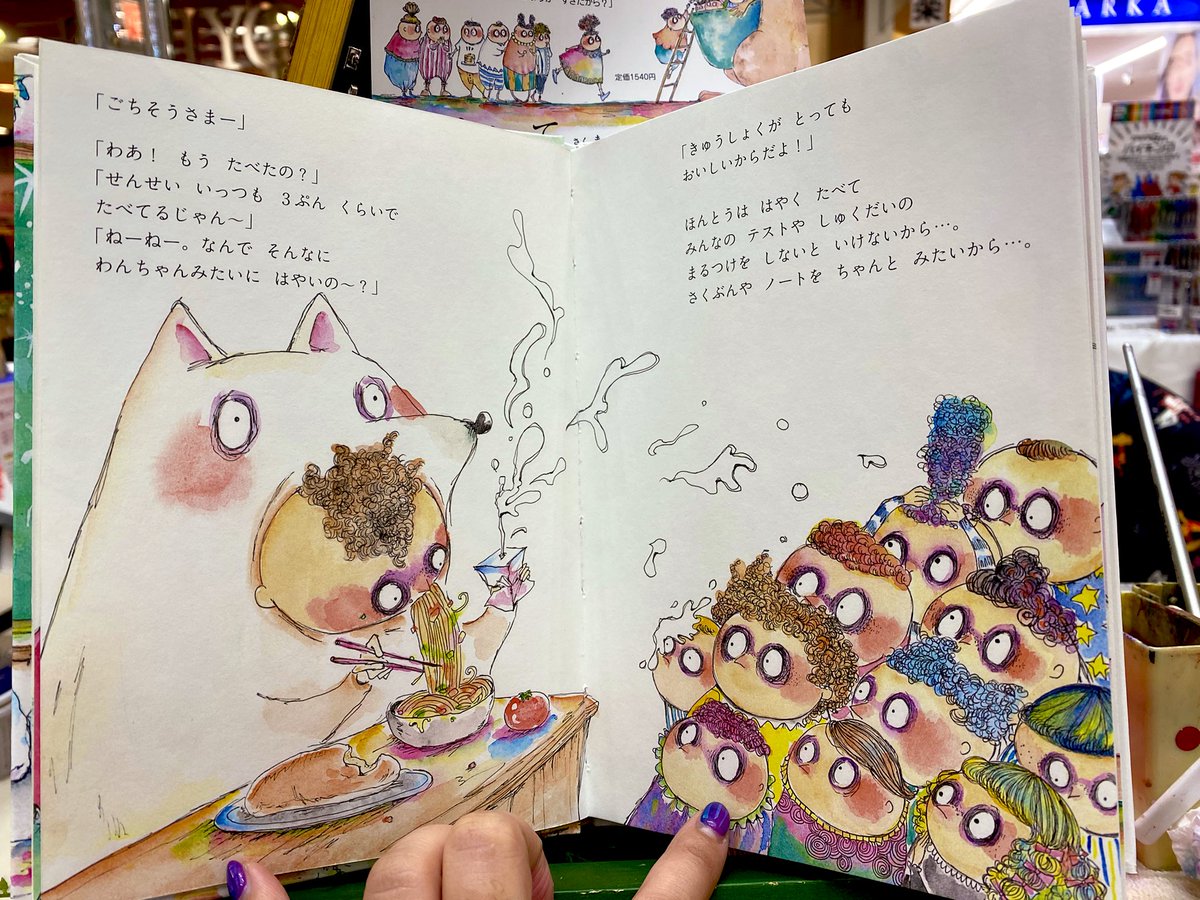 定価1540円
ARKA
「ごちそうさまー」
「わあ！　もう　たべたの？」
「せんせい　いっつも　３ぷん　くらいで
たべてるじゃん〜」
「ねーねー。なんで　そんなに
わんちゃんみたいに　はやいの〜？」
「きゅうしょくが　とっても
おいしいからだよ！」
ほんとうは　はやく　たべて
みんなの　テストや　しゅくだいの
まるつけを　しないと　いけないから…。
さくぶんや　ノートを　ちゃんと　みたいから…。